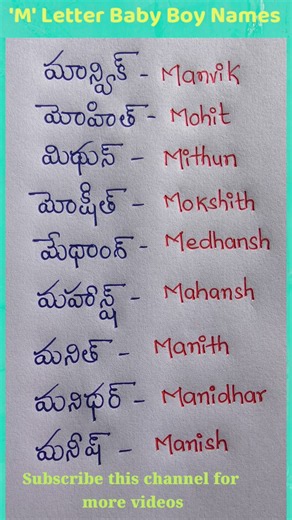 'M' Letter Baby Boy Names
మాన్విక్ - Manvik
మోహిత్ - Mohit
మిథున్ - Mithun
మోక్షిత్ - Mokshith
మేథాంశ్ - Medhansh
మహాన్ష్ - Mahansh
మనిత్ - Manith
మనిథర్ - Manidhar
మనీష్ - Manish
Subscribe this channel for
more videos